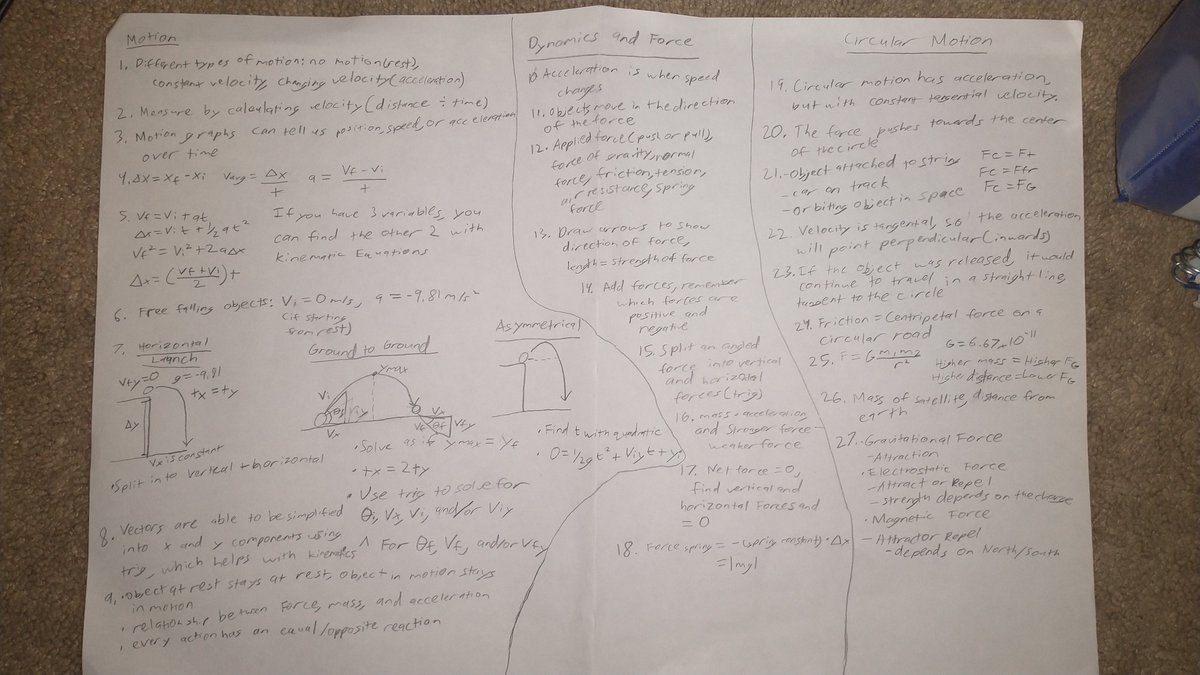 Motion
1. Different types of motion: no motion(rest),
constant velocity, changing velocity (acceleration)
2. Measure by calculating velocity (distance ÷ time)
3. Motion graphs can tell us position, speed, or acceleration
over time
4. Δx = xf - xi Vavg = Δx/t a = Vf - Vi/t
5. Vf = Vi + at
Δx = Vi t + 1/2 at²
Vf² = Vi² + 2aΔx
Δx = (Vf + Vi/2)t
If you have 3 variables, you
can find the other 2 with
kinematic Equations
6. Free falling objects: Vi = 0 m/s, a = -9.81 m/s²
(if starting
from rest)
7. Horizontal
Launch
Viy=0 g=-9.81
tx = ty
Δy
Vx is constant
•Split into vertical + horizontal
Ground to Ground
Ymax
Vi
θi
Viy
Vx
Vx
Vf
θf
Vfy
• Solve as if ymax = yf
• tx = 2ty
• Use trig to solve for
θi, Vx, Vi, and/or Viy
^ For θf, Vf, and/or Vfy
Asymmetrical
• Find t with quadratic
• 0 = 1/2gt² + Viyt + yi
8. Vectors are able to be simplified
into x and y components using
trig, which helps with kinematics
9. •object at rest stays at rest, object in motion stays
in motion
• relationship between Force, mass, and acceleration
• every action has an equal/opposite reaction
Dynamics and Force
10 Acceleration is when speed
changes
11. Objects move in the direction
of the force
12. Applied force (push or pull),
force of gravity, normal
force, friction, tension,
air resistance, spring
force
13. Draw arrows to show
direction of force,
length = strength of force
14. Add forces, remember
which forces are
positive and
negative
15. Split an angled
force into vertical
and horizontal
forces (trig)
16. mass • acceleration,
and Stronger force -
weaker force
17. Net force = 0,
find vertical and
horizontal Forces and
= 0
18. Force spring = -(spring constant) • Δx
= |mg|
Circular Motion
19. Circular motion has acceleration,
but with constant tangential velocity.
20. The force pushes towards the center
of the circle
21. -Object attached to string Fc = Ft
- car on track Fc = Ffr
- orbiting object in space Fc = FG
22. Velocity is tangental, so the acceleration
will point perpendicular (inwards)
23. If the object was released, it would
continue to travel in a straight line,
tangent to the circle
24. Friction = Centripetal force on a
circular road
25. F = G m1m2/r²
G = 6.67x10⁻¹¹
Higher mass = Higher FG
Higher distance = Lower FG
26. Mass of satellite, distance from
earth
27. • Gravitational Force
-Attraction
• Electrostatic Force
-Attract or Repel
- strength depends on the charge
• Magnetic Force
- Attract or Repel
- depends on North/South